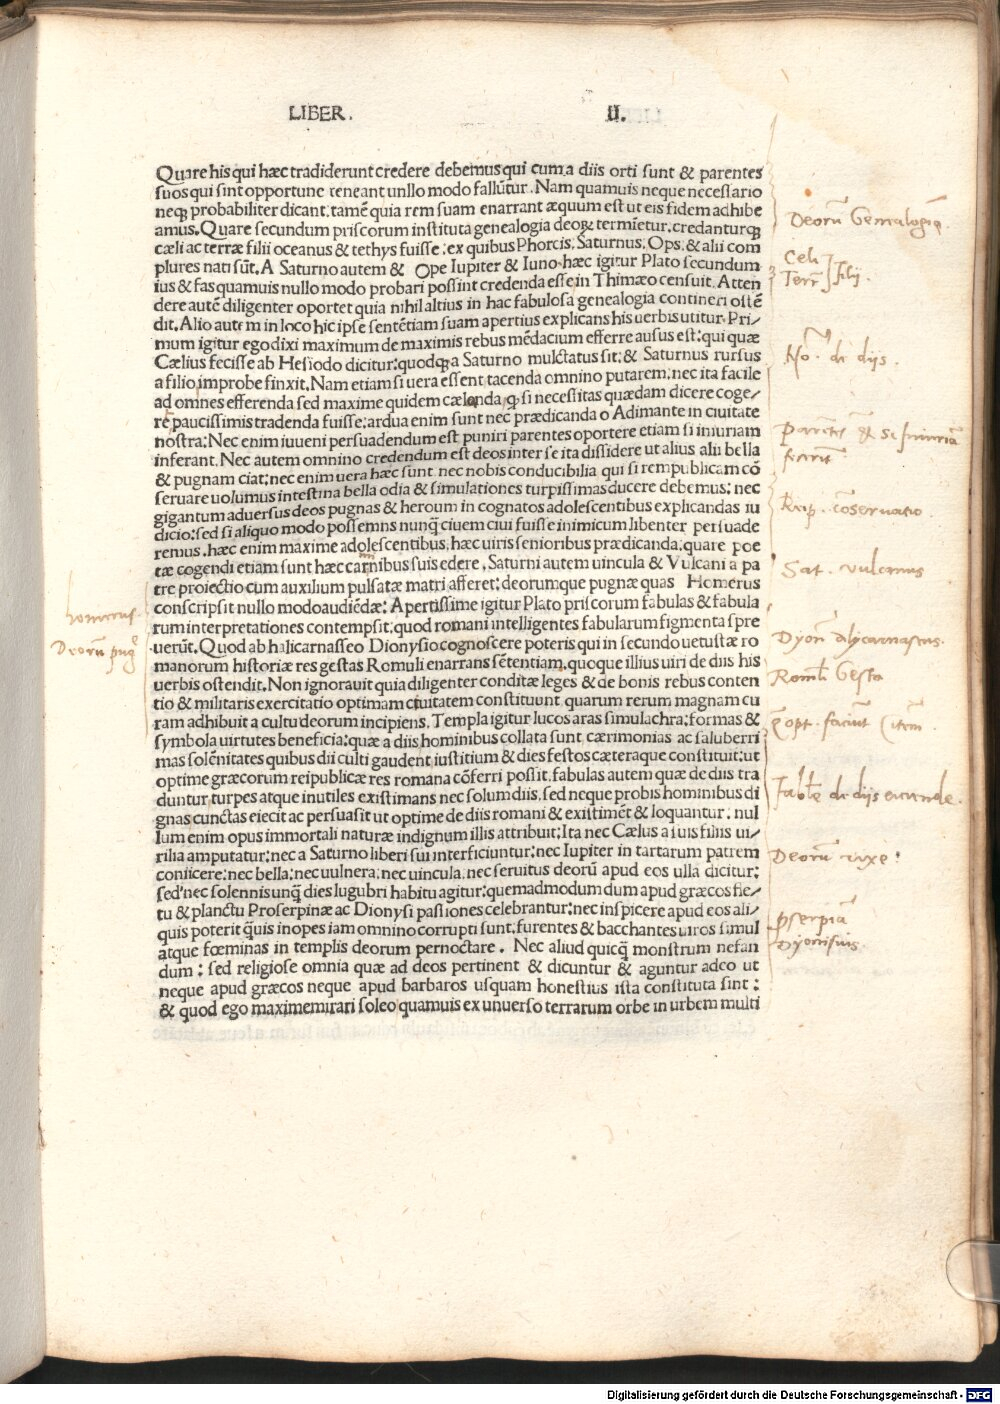 LIBER. II.
Quare his qui hæc tradiderunt credere debemus qui cum a diis orti sunt & parentes
suos qui sint opportune teneant unllo modo fallūtur. Nam quamuis neque necessario
neqꝫ probabiliter dicant, tamē quia rem suam enarrant æquum est ut eis fidem adhibe
amus. Quare secundum priscorum instituta genealogia deoꝝ termīetur, credanturqꝫ
cæli ac terræ filii oceanus & tethys fuisse: ex quibus Phorcis, Saturnus, Ops, & alii com
plures nati sūt. A Saturno autem & Ope Iupiter & Iuno hæc igitur Plato secundum
ius & fas quamuis nullo modo probari possint credenda esse in Thimæo censuit. Atten
dere autē diligenter oportet quia nihil altius in hac fabulosa genealogia contineri ostē
dit. Alio autem in loco hic ipse sentētiam suam apertius explicans his uerbis utitur. Pri⸗
mum igitur ego dixi maximum de maximis rebus mēdacium efferre ausus est: qui quæ
Cælius fecisse ab Hesiodo dicitur: quodqꝫ a Saturno mulctatus sit: & Saturnus rursus
a filio improbe finxit. Nam etiam si uera essent tacenda omnino putarem: nec ita facile
ad omnes efferenda sed maxime quidem cælanda ꝙ si necessitas quædam dicere coge⸗
ret paucissimis tradenda fuisse: ardua enim sunt nec prædicanda o Adimante in ciuitate
nostra: Nec enim iuueni persuadendum est puniri parentes oportere etiam si iniuriam
inferant. Nec autem omnino credendum est deos inter se ita dissidere ut alius alii bella
& pugnam ciat: nec enim uera hæc sunt nec nobis conducibilia qui si rempublicam cō
seruare uolumus intestina bella odia & simulationes turpissimas ducere debemus: nec
gigantum aduersus deos pugnas & heroum in cognatos adolescentibus explicandas iu
dicio: sed si aliquo modo possemns nunq̄ ciuem ciui fuisse inimicum libenter persuade
remus, hæc enim maxime adolescentibus, hæc uiris senioribus prædicanda: quare poe
tæ cogendi etiam sunt hæc carnibus suis edere, Saturni autem uincula & Vulcani a pa
tre proiectio cum auxilium pulsatæ matri afferet: deorumque pugnæ quas Homerus
homerus
conscripsit nullo modo audiēdæ: Apertissime igitur Plato priscorum fabulas & fabula
rum interpretationes contempsit: quod romani intelligentes fabularum figmenta spre
uerūt. Quod ab halicarnasseo Dionysio cognoscere poteris qui in secundo uetustæ ro
manorum historiæ res gestas Romuli enarrans sētentiam quoque illius uiri de diis his
uerbis ostendit. Non ignorauit quia diligenter conditæ leges & de bonis rebus conten
tio & militaris exercitatio optimam ciuitatem constituunt quarum rerum magnam cu
ram adhibuit a cultu deorum incipiens. Templa igitur lucos aras simulachra: formas &
symbola uirtutes beneficia: quæ a diis hominibus collata sunt cærimonias ac saluberri
mas solēnitates quibus dii culti gaudent iustitium & dies festos cæteraque constituit: ut
optime græcorum reipublicæ res romana cōferri possit, fabulas autem quæ de diis tra
duntur turpes atque inutiles existimans nec solum diis, sed neque probis hominibus di
gnas cunctas eiecit ac persuasit ut optime de diis romani & existimēt & loquantur: nul
lum enim opus immortali naturæ indignum illis attribuit: Ita nec Cælus a suis filiis ui⸗
rilia amputatur: nec a Saturno liberi sui interficiuntur: nec Iupiter in tartarum patrem
coniicere: nec bella: nec uulnera: nec uincula: nec seruitus deorū apud eos ulla dicitur:
sed nec solennis unq̄ dies lugubri habitu agitur: quemadmodum dum apud græcos fle⸗
tu & planctu Proserpinæ ac Dionysi passiones celebrantur: nec inspicere apud eos ali⸗
quis poterit q̄uis inopes iam omnino corrupti sunt, furentes & bacchantes uiros simul
atque fœminas in templis deorum pernoctare. Nec aliud quicq̄ monstrum nefan
dum: sed religiose omnia quæ ad deos pertinent & dicuntur & aguntur adeo ut
neque apud græcos neque apud barbaros usquam honestius ista constituta sint:
& quod ego maxime mirari soleo quamuis ex unuerso terrarum orbe in urbem multi
Deorū Genealogia.
Celi
Terr filij.
No. de diis.
parētes & se iniuriā
fecerūt
Reip. cōseruatio
Sat. vulcanus
Deorū pug
Dyon alycarnaseus.
Romli Gesta
Fabule de diis
Deorū
pserpiā
Dyonisius.
Digitalisierung gefördert durch die Deutsche Forschungsgemeinschaft - DFG